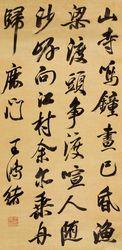 山寺鳴鐘晝已昏漁
梁渡頭争渡喧人隨
沙路向江村余亦乘舟
歸鹿門 王鴻緒